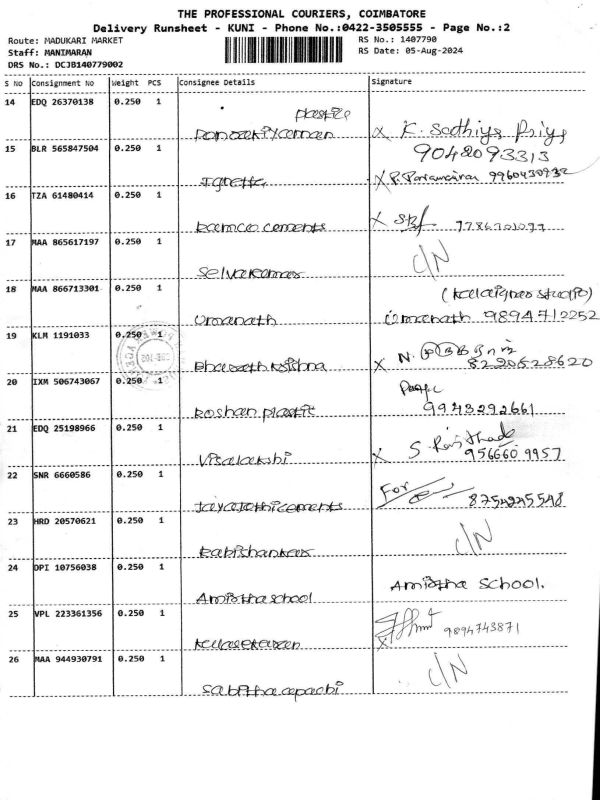 THE PROFESSIONAL COURIERS, COIMBATORE
Delivery Runsheet - KUNI - Phone No.:0422-3505555 - Page No.:2
Route: MADUKARI MARKET RS No.: 1407790
Staff: MANIMARAN RS Date: 05-Aug-2024
DRS No.: DCJB140779002
S No Consignment No Weight PCS Consignee Details Signature
14 EDQ 26370138 0.250 1
plastic
K. Sathiya Priya
15 BLR 565847504 0.250 1 9042093313
9960430932
16 TZA 61480414 0.250 1
Ramco cements
17 MAA 865617197 0.250 1 C/N
Selvakumar
18 MAA 866713301 0.250 1 (Kalaignar studio)
Umanath Umanath 9894712252
19 KLM 1191033 0.250 1
Bharath krishna 8220628620
20 IXM 506743067 0.250 1
Roshan plastic 9943292661
21 EDQ 25198966 0.250 1
Visalakshi 956660 9957
22 SNR 6660586 0.250 1 For
Jayajothi cements 8754245548
23 HRD 20570621 0.250 1 C/N
24 DPI 10756038 0.250 1 Amirtha School.
Amirtha school
25 VPL 223361356 0.250 1
Kulasekaran 9894743871
26 MAA 944930791 0.250 1 C/N